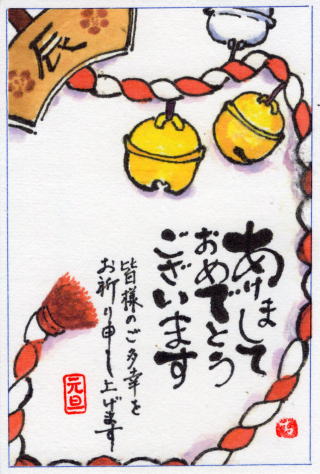 辰
あけまして
おめでとう
ございます
皆様のご多幸を
お祈り申し上げます
元旦